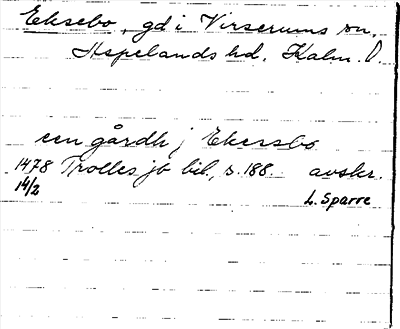 Eksebo, gd i Virserums sn,
Aspelands hd. Kalm. l.
een gårdh j Ekersbo
1478 Trolles jb bil, s. 188. avskr.
14/2
L. Sparre